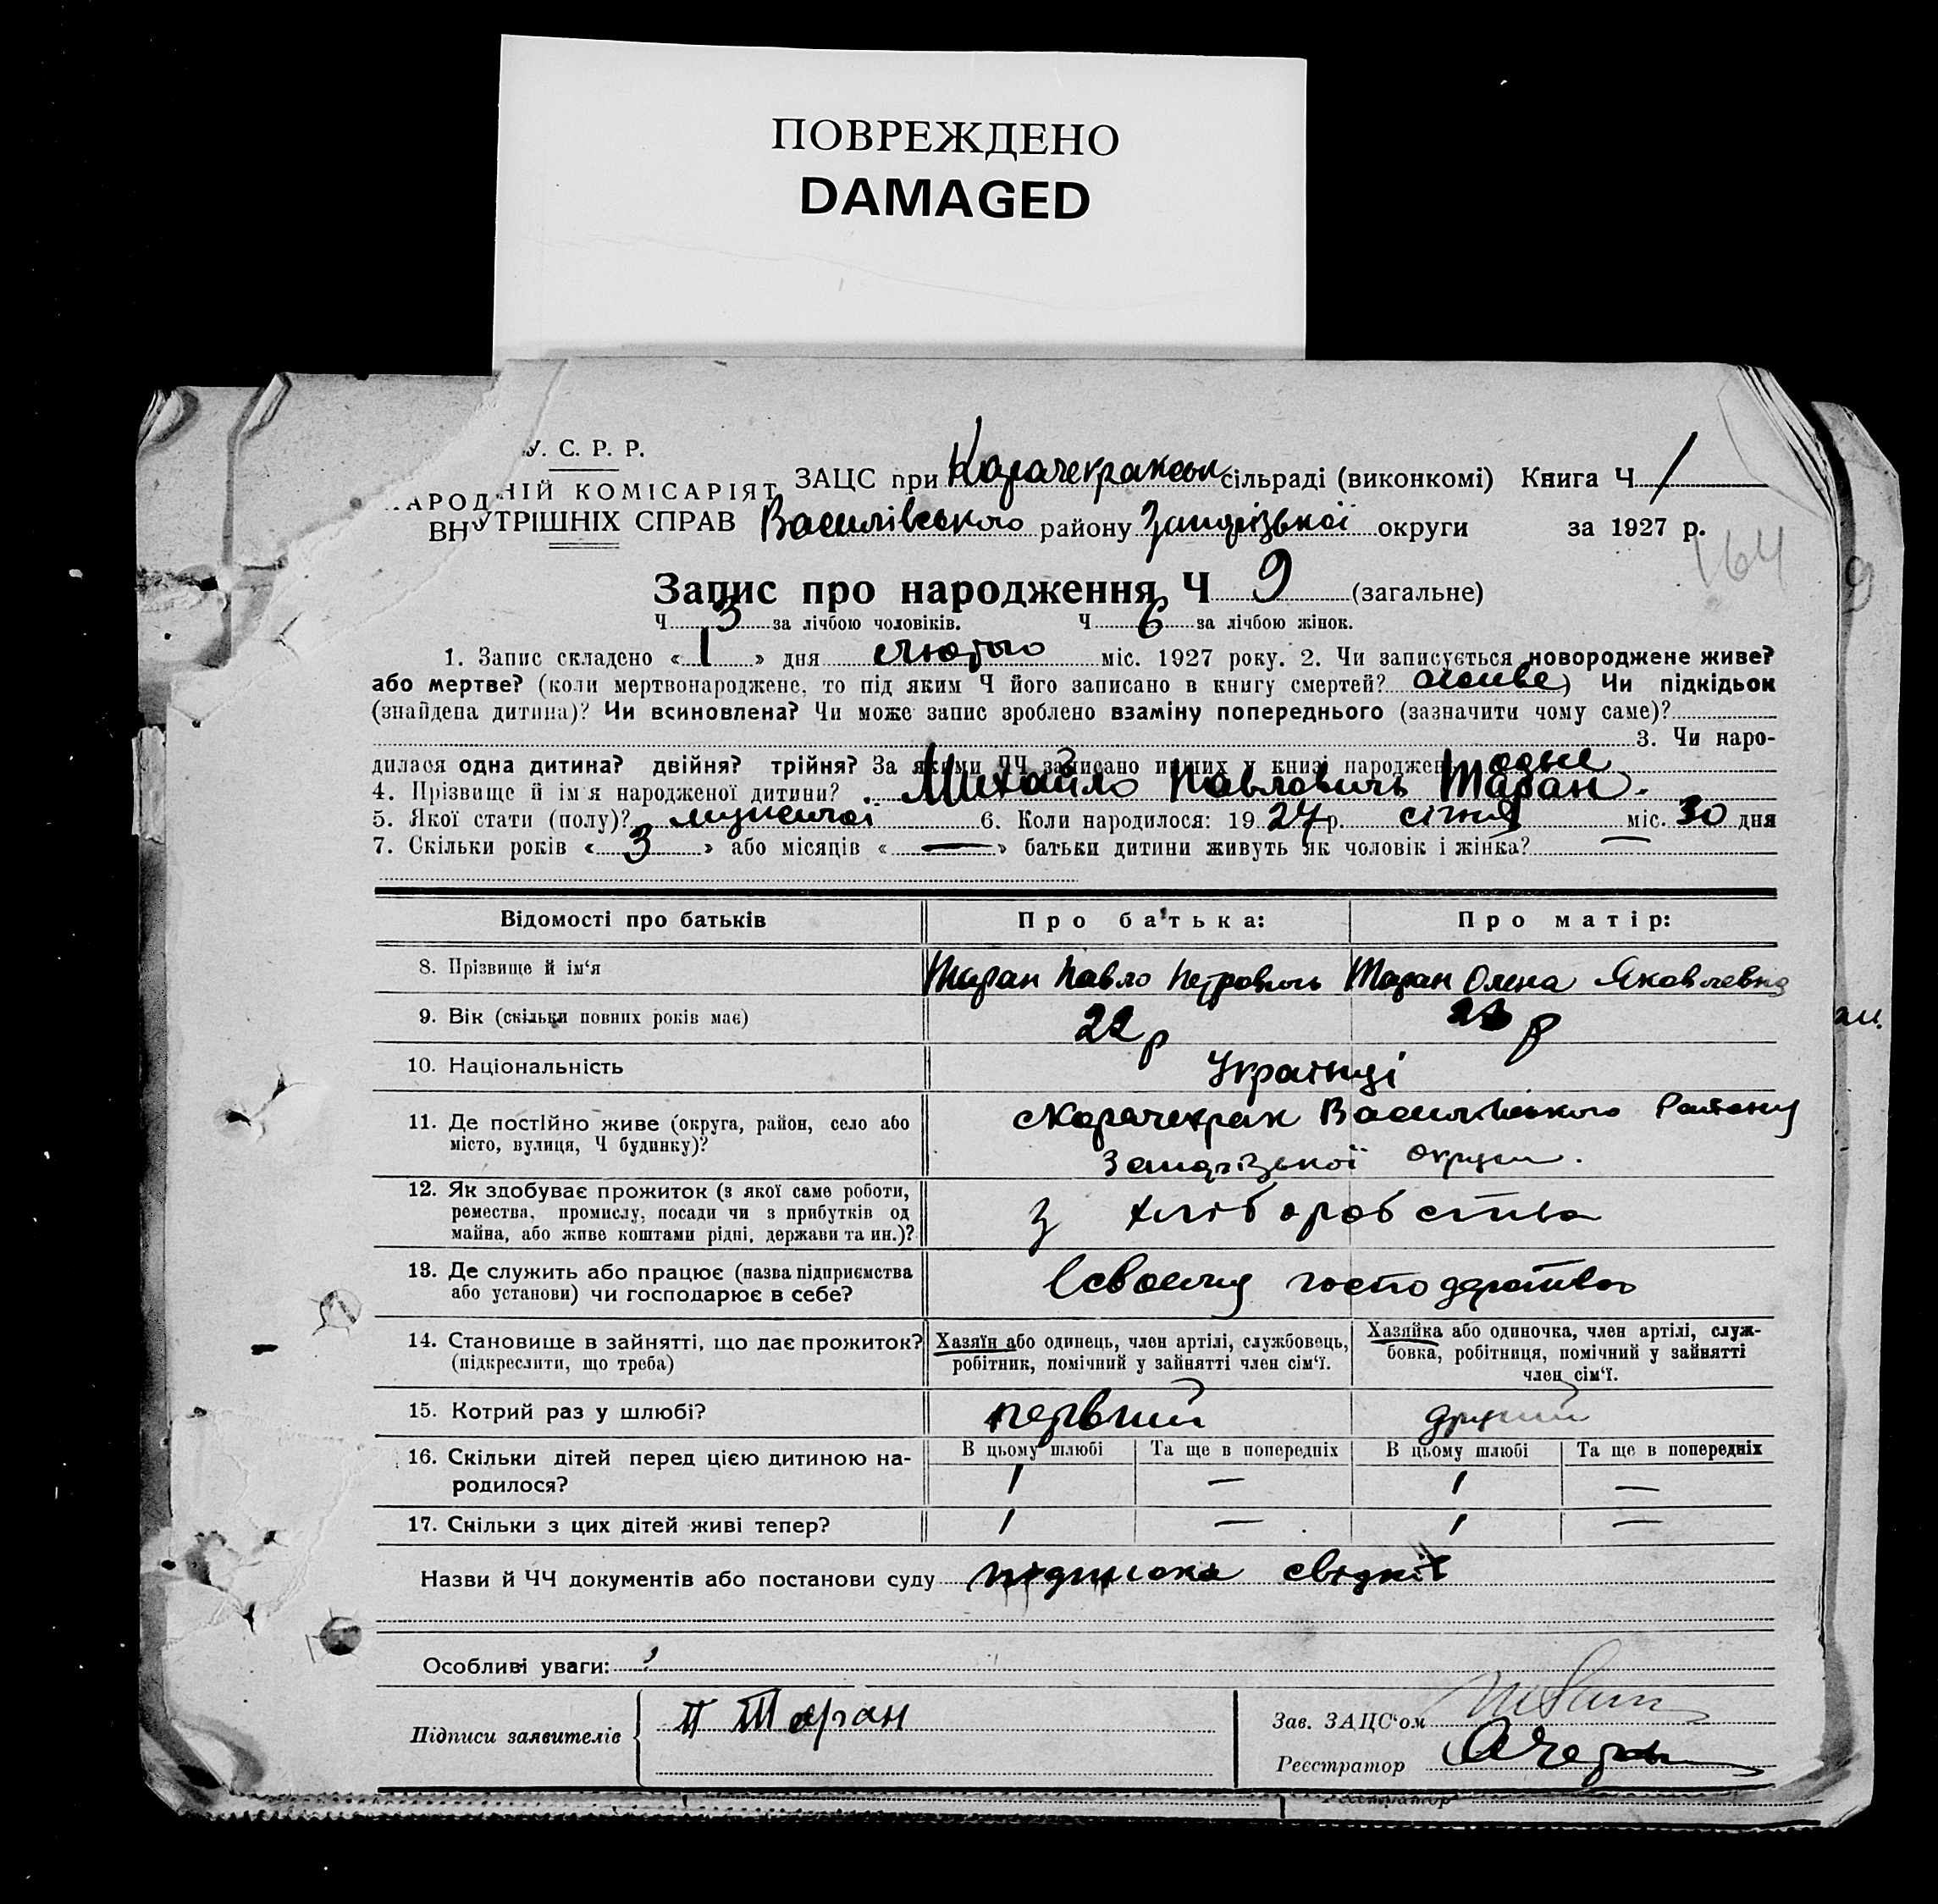 ПОВРЕЖДЕНО
DAMAGED
У. С. Р. Р.
НАРОДНІЙ КОМІСАРІЯТ
ВНУТРІШНІХ СПРАВ
ЗАЦС при Карачекракськ сільраді (виконкомі) Книга Ч 1
Василівського району Запорізької округи за 1927 р.
164
9
Запис про народження Ч 9 (загальне)
Ч 3 за лічбою чоловіків. Ч 6 за лічбою жінок.
1. Запис складено « 1 » дня лютого міс. 1927 року. 2. Чи записується новороджене живе?
або мертве? (коли мертвонароджене, то під яким Ч його записано в книгу смертей? живе) Чи підкідьок
(знайдена дитина)? Чи всиновлена? Чи може запис зроблено взаміну попереднього (зазначити чому саме)?
3. Чи наро-
дилася одна дитина? двійня? трійня? За якими ЧЧ записано инших у книзі народжень одне
4. Прізвище й ім'я народженої дитини? Михайло Павлович Таран.
5. Якої стати (полу)? мужської 6. Коли народилося: 1927 р. січня міс. 30 дня
7. Скільки років « 3 » або місяців « — » батьки дитини живуть як чоловік і жінка? —
Відомості про батьків Про батька: Про матір:
8. Прізвище й ім'я Таран Павло Петрович Таран Олена Яковлевна
9. Вік (скільки повних років має) 22 р 23 р
10. Національність Українці
11. Де постійно живе (округа, район, село або місто, вулиця, Ч будинку)? с Карачекрак Василівського Району
Запорізької округи.
12. Як здобуває прожиток (з якої саме роботи,
ремества, промислу, посади чи з прибутків од
майна, або живе коштами рідні, держави та ин.)? З хліборобства
13. Де служить або працює (назва підприємства
або установи) чи господарює в себе? В своєму господарстві
14. Становище в зайнятті, що дає прожиток?
(підкреслити, що треба)
Хазяїн або одинець, член артілі, службовець,
робітник, помічний у зайнятті член сім'ї.
Хазяйка або одиночка, член артілі, служ-
бовка, робітниця, помічний у зайнятті
член сім'ї.
15. Котрий раз у шлюбі? первий другий
16. Скільки дітей перед цією дитиною на-
родилося?
В цьому шлюбі Та ще в попередніх В цьому шлюбі Та ще в попередніх
1 — 1 —
17. Скільки з цих дітей живі тепер? 1 — 1 —
Назви й ЧЧ документів або постанови суду підписка свідків
Особливі уваги:
Підписи заявителів П Таран
Зав. ЗАЦС'ом
Реєстратор